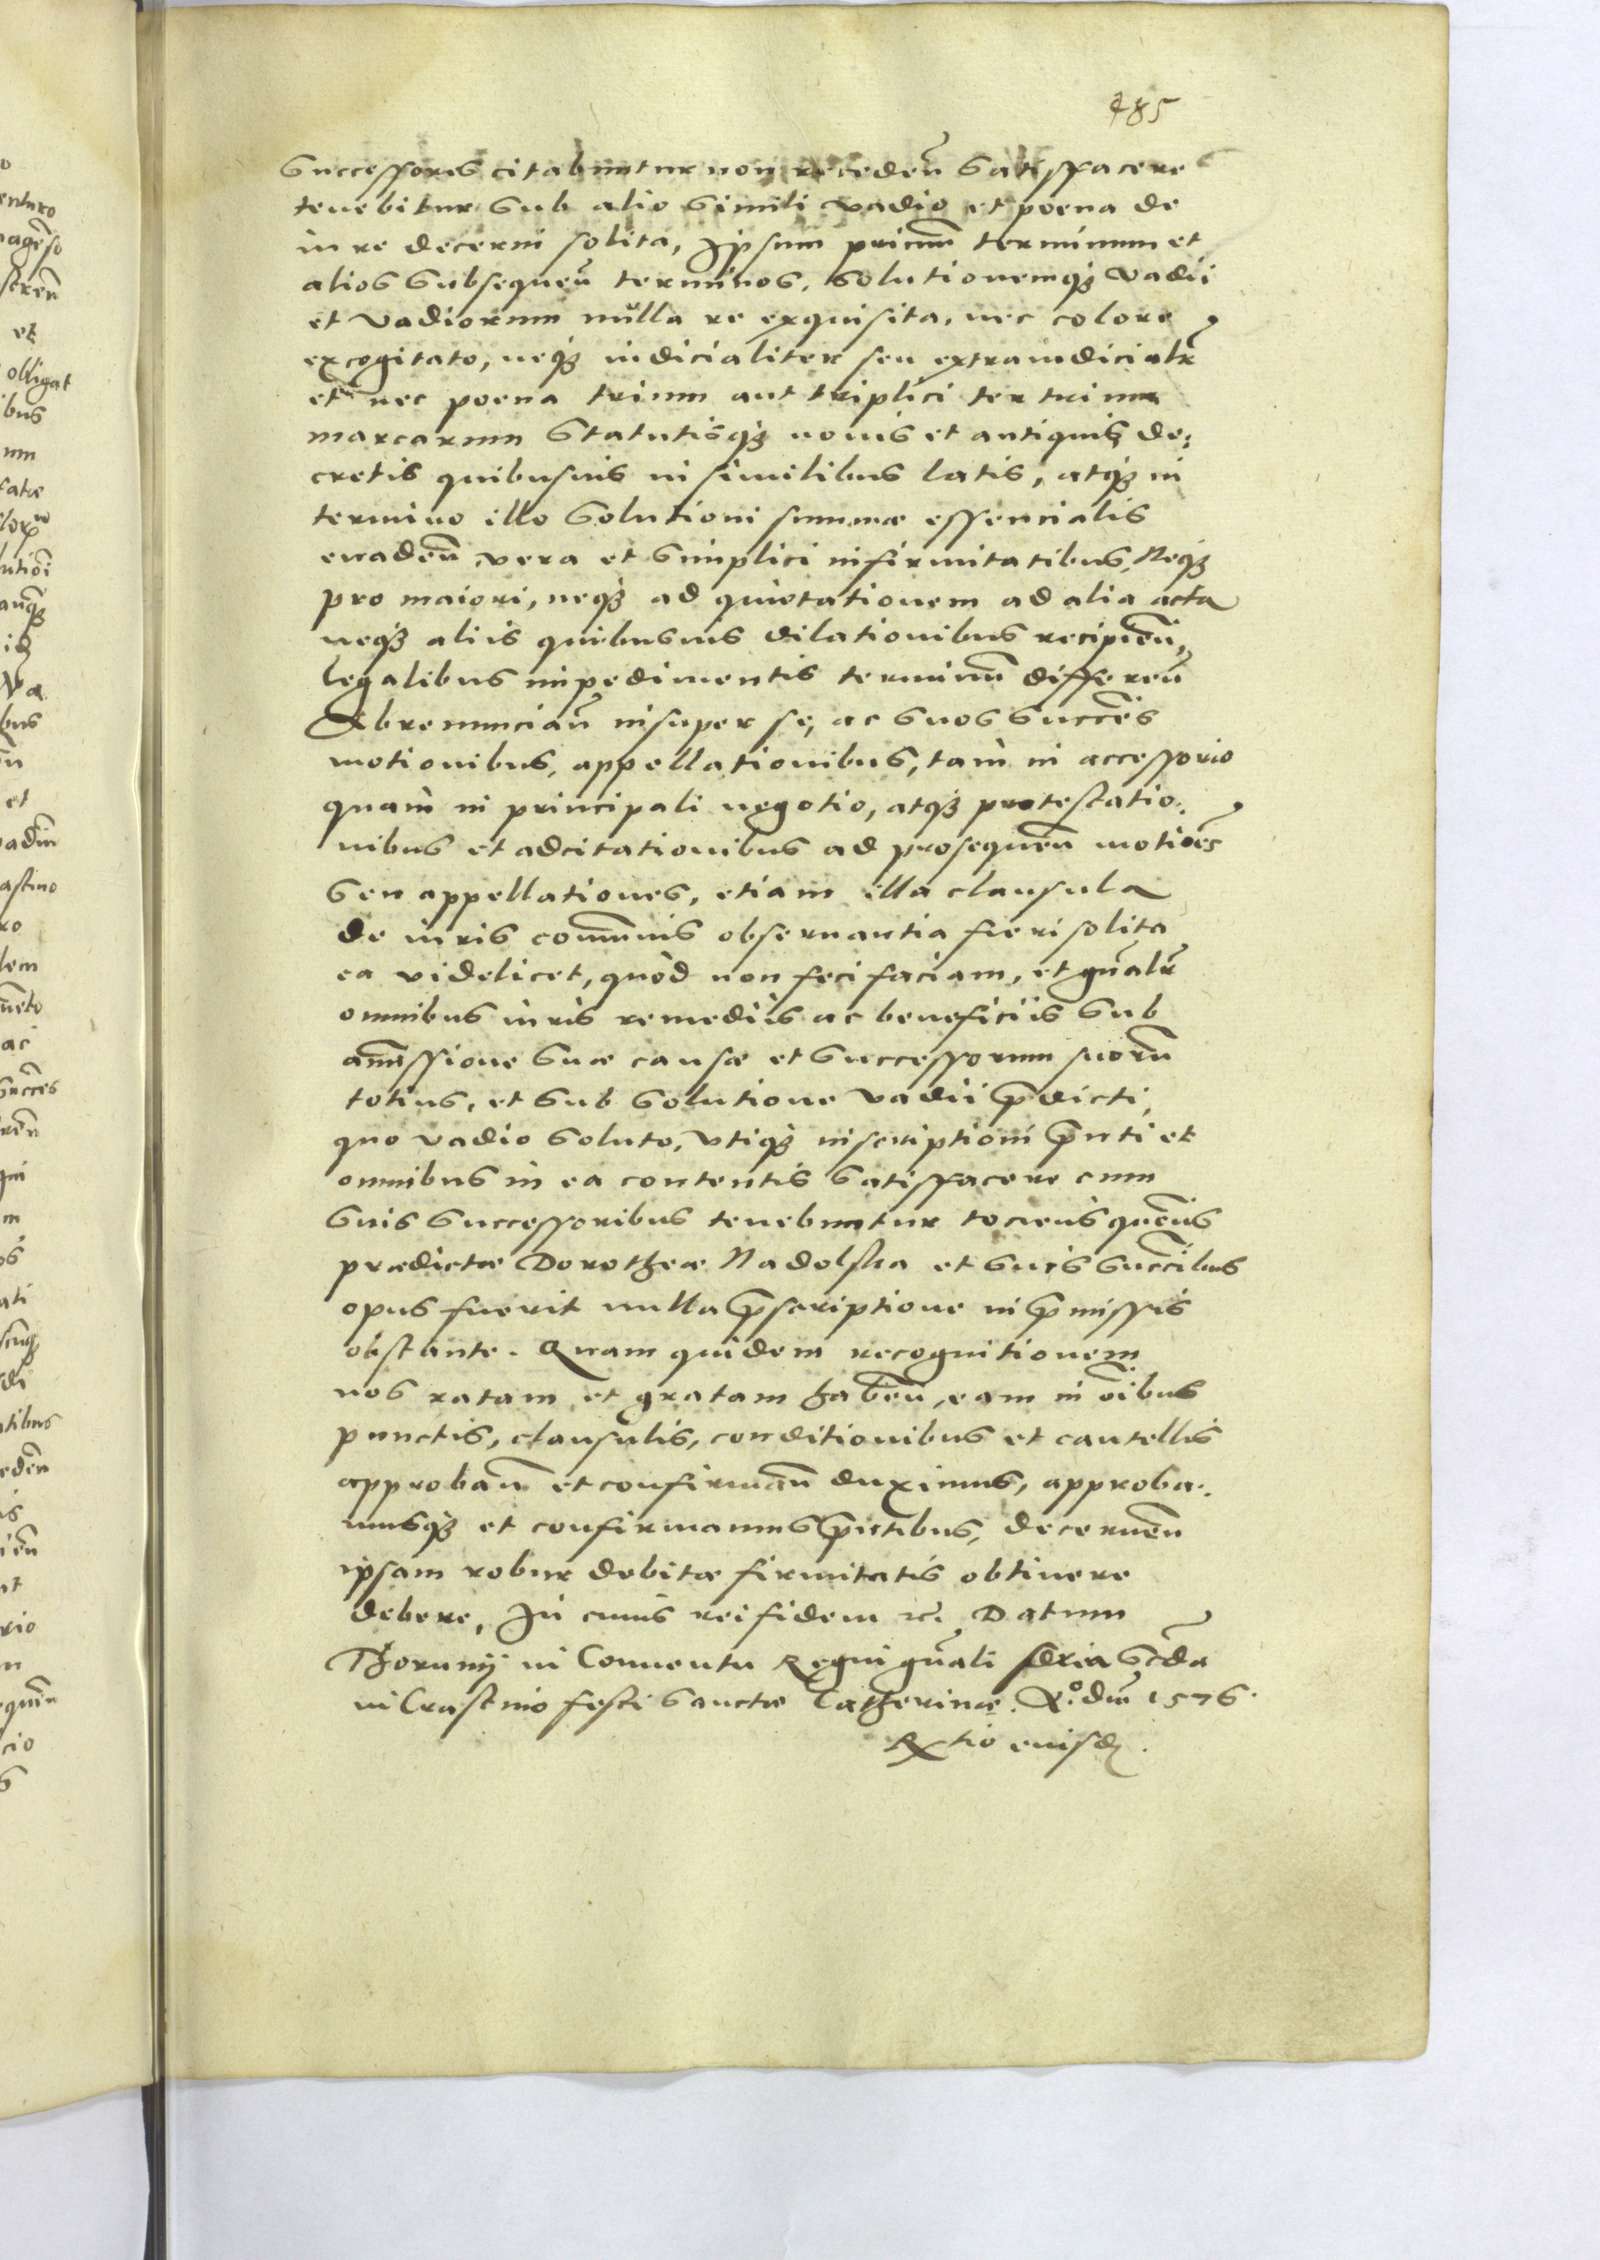 485
successores citabuntur non recedeñ satisfacere
tenebitur sub alio simili vadio et poena de
iure decerni solita, Ipsum primum̃ terminum et
alios subsequeñ terminos, solutionemq3 vadii
et vadiorum nulla re exquisita, nec colore
excogitato, neq3 iudicialiter seu extraiudicialr̃
et nec poena trium aut triplici ter trium
marcarum statutisq3 nouis et antiquis de:
cretis quibusuis in similibus latis, atq3 in
termino illo solutioni summæ essencialis
euadeñ vera et simplici infirmitatibus, Neq3
pro maiori, neq3 ad quietationem ad alia acta
neq3 aliis quibusuis dilationibus recipieñ,
legalibus impedimentis terminũ differeñ
Abrenunciañ insuper se, ac suos succes̃
motionibus, appellationibus, tam in accessorio
quam in principali negotio, atq3 protestatio:
nibus et adcitationibus ad prosequeñ motiões
seu appellationes, etiam illa clausula
de iuris com̃unis obseruantia fieri solita
ea videlicet, quod non feci faciam, et gñalr̃
omnibus iuris remediis ac beneficiis sub
am̃issione suæ causæ et successorum suorũ
totius, et sub solutione vadii p̃dicti,
quo vadio soluto, vtiq3 inscriptioni p̃nti et
omnibus in ea contentis satisfacere cum
suis successoribus tenebuntur tociens queñs
prædictæ Dorotheæ Nadolska et suis succ̃ibus
opus fuerit nulla p̃scriptione in p̃missis
obstante. Quam quidem recognitionem
nos ratam et gratam habeñ, eam in oĩbus
punctis, clausulis, conditionibus et cautellis
approbañ et confirmañ duximus, approba:
musq3 et confirmamus p̃ntibus, decerneñ
ipsam robur debitæ firmitatis obtinere
debere, In cuius rei fidem ꝛc̃. Datum
Thorunij in Conuentu Regni gñali feria sc̃da
in Crastino festi Sanctæ Catherinæ. A.º dn̄i 1576.
Rtio eiusd̃.